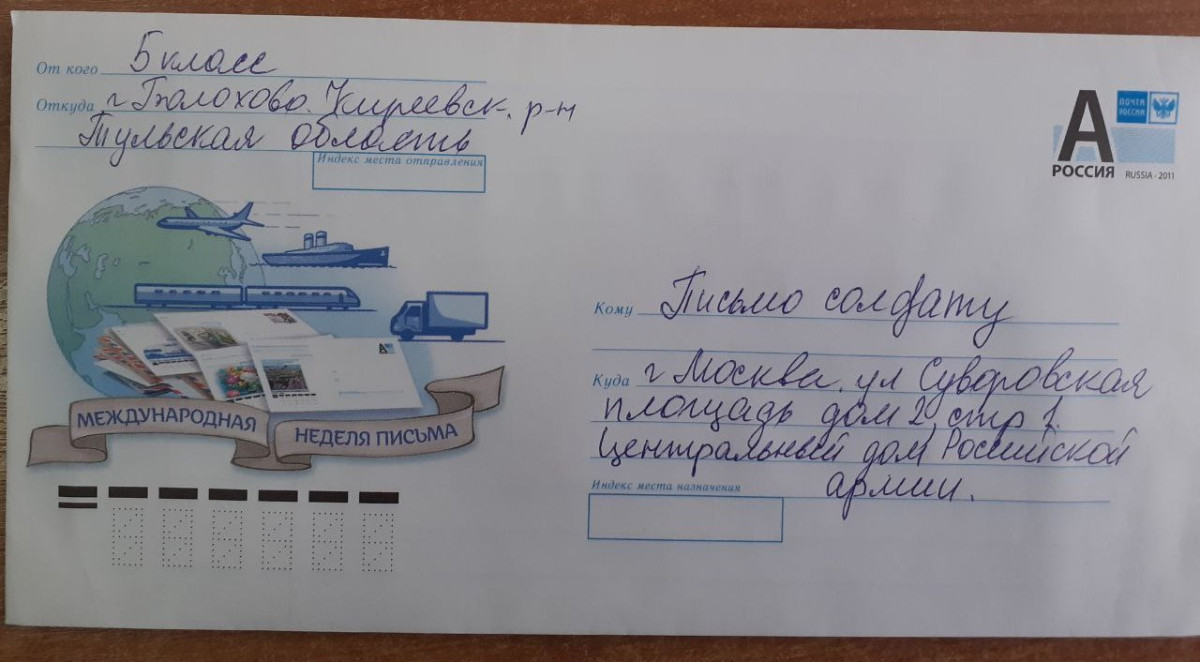 От кого 5 класс
Откуда г Болохово. Киреевск. р-н
Тульская область
Индекс места отправления
ПОЧТА
РОССИИ
А
РОССИЯ RUSSIA - 2011
МЕЖДУНАРОДНАЯ
НЕДЕЛЯ ПИСЬМА
Кому Письмо солдату
Куда г Москва. ул Суворовская
площадь дом 2, стр 1.
Центральный дом Российской
армии.
Индекс места назначения